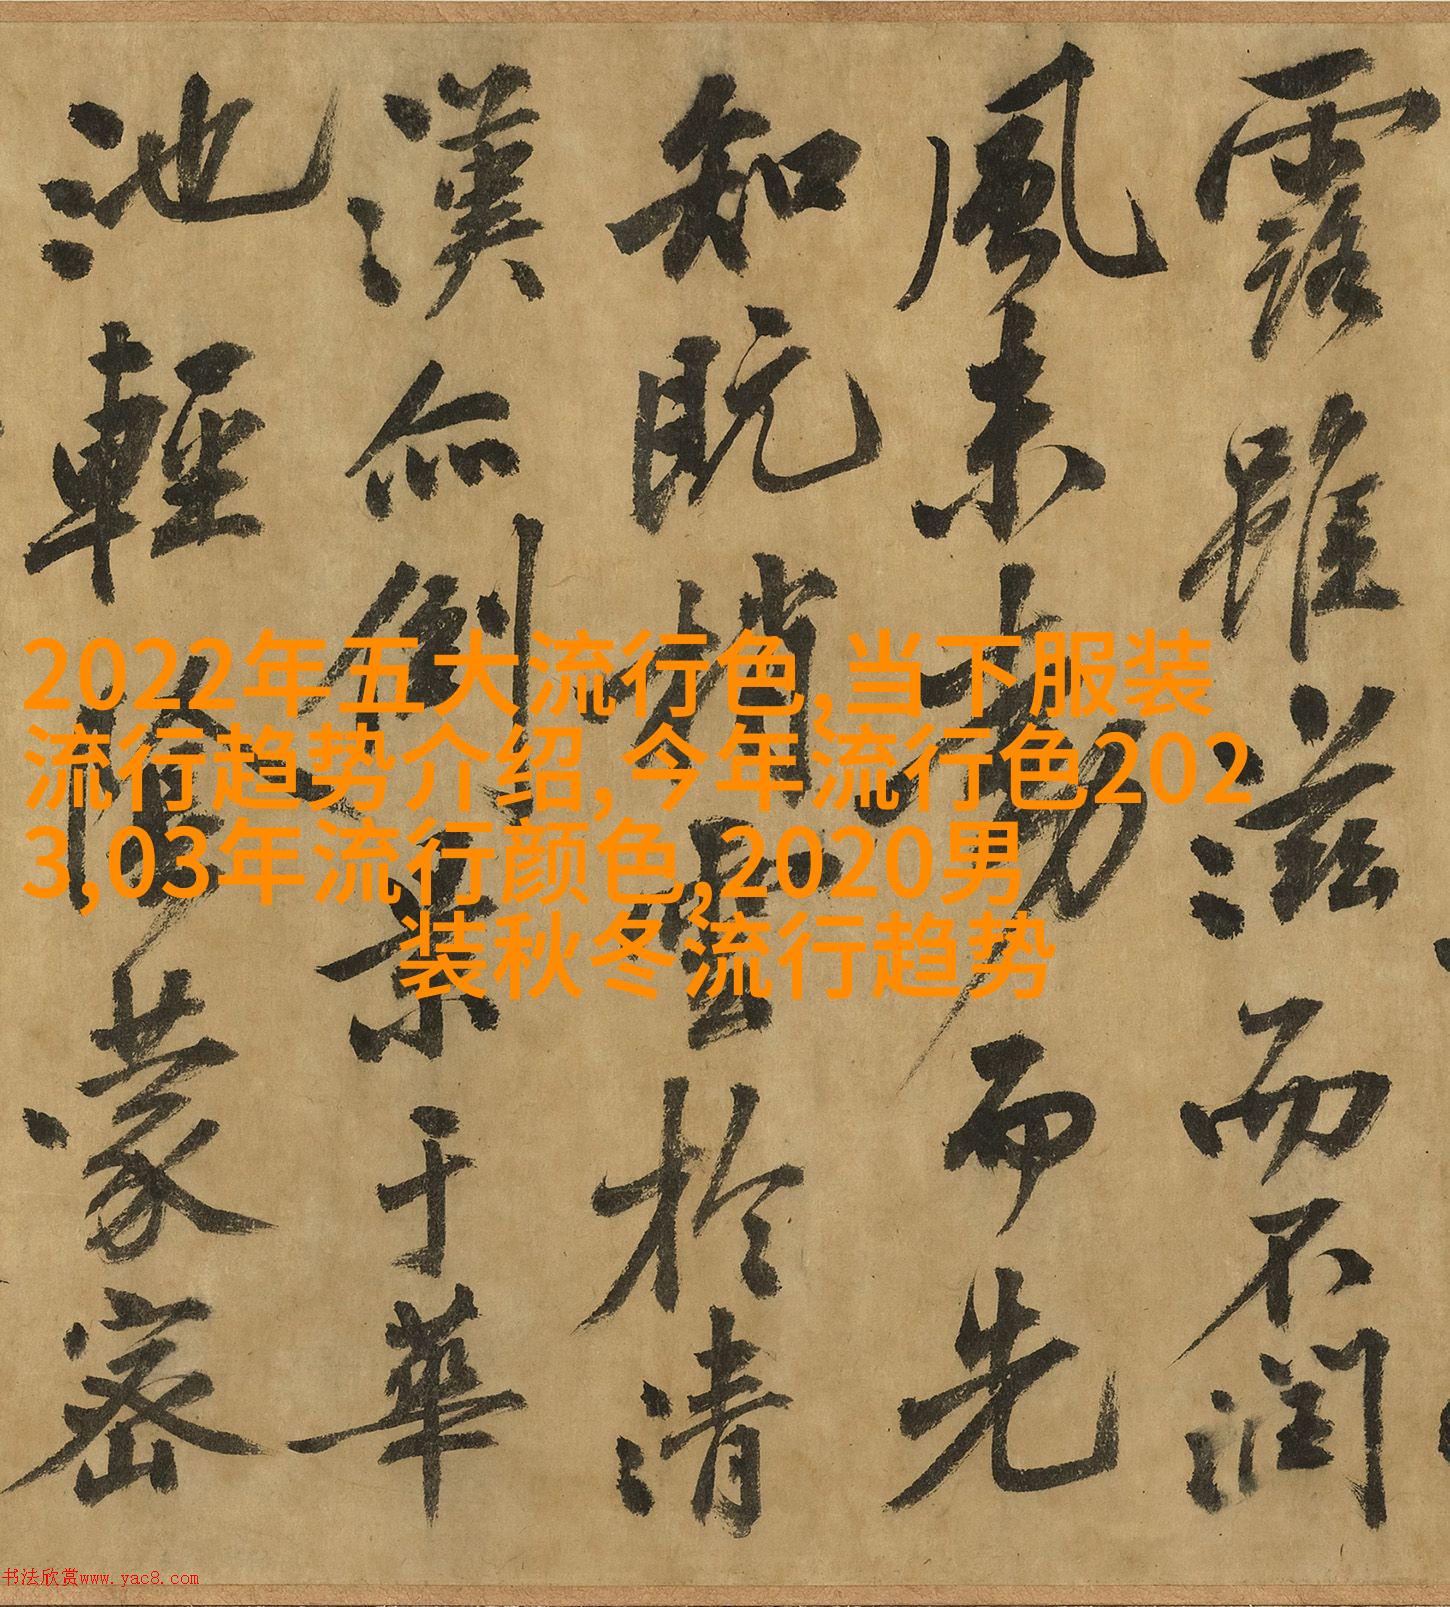 露雖滋而不潤
風未勁而先
知既梢雲於清
漢亦倒景于華
池輕陰蒙密
2022年五大流行色,当下服装
流行趋势介绍, 今年流行色202
3,03年流行颜色,2020男
装秋冬流行趋势
书法欣赏www.yac8.com